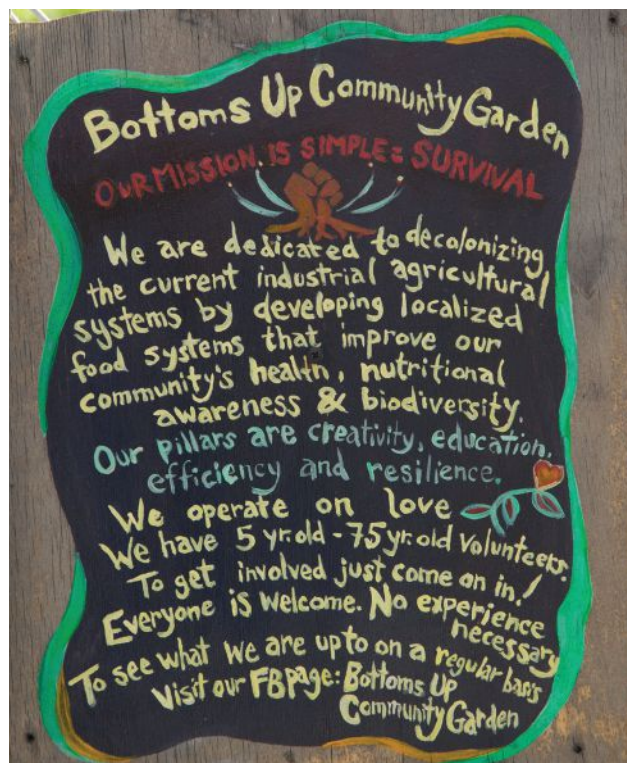 Bottoms Up Community Garden
OUR MISSION IS SIMPLE: SURVIVAL
We are dedicated to decolonizing
the current industrial agricultural
systems by developing localized
food systems that improve our
community's health, nutritional
awareness & biodiversity.
Our pillars are creativity, education,
efficiency and resilience.
We operate on love
We have 5 yr. old - 75 yr. old volunteers.
To get involved just come on in!
Everyone is welcome. No experience
necessary
To see what we are up to on a regular basis
Visit our FB page: Bottoms Up
Community Garden